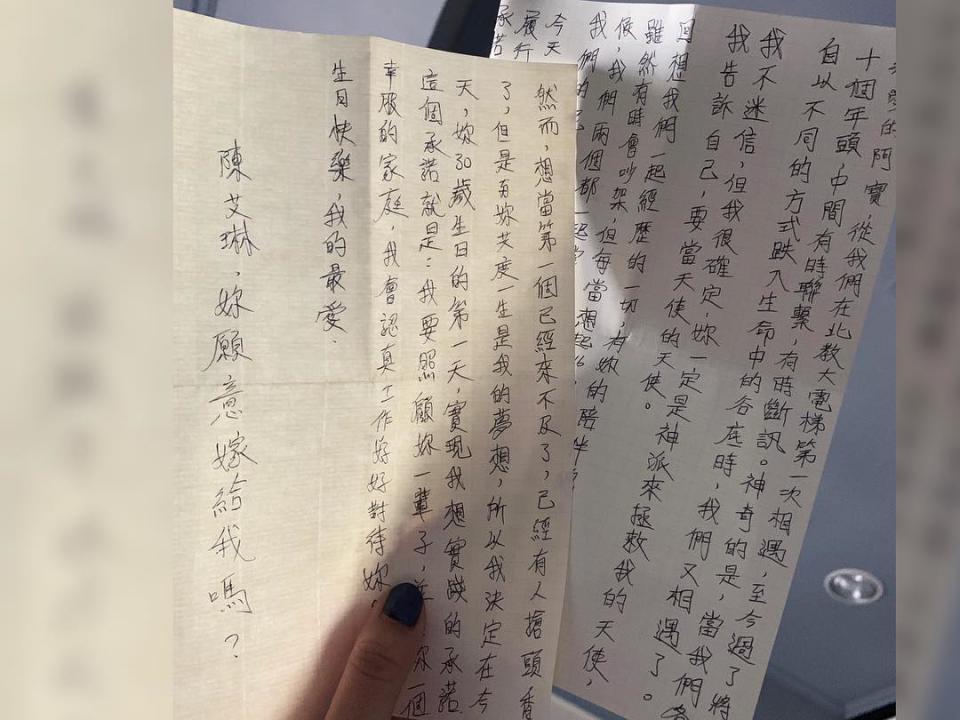 親愛的阿寶，從我們在北教大電梯第一次相遇，至今過了將
十個年頭，中間有時聯繫，有時斷訊。神奇的是，當我們各
自以不同的方式跌入生命中的谷底時，我們又相遇了。
我不迷信，但我很確定，妳一定是神派來拯救我的天使，
我告訴自己，要當天使的天使。
回想我們一起經歷的一切，有妳的陪伴
雖然有時會吵架，但每當想起
候，我們兩個都一起
我們的
今天
履行
承諾
然而，想當第一個已經來不及了，已經有人搶頭香
了，但是與妳共度一生是我的夢想，所以我決定在今
天，妳30歲生日的第一天，實現我想實踐的承諾
這個承諾就是：我要照顧妳一輩子，並 你一個
幸服的家庭，我會認真工作好好對待妳，
生日快樂，我的最愛．
陳艾琳，妳願意嫁給我嗎？